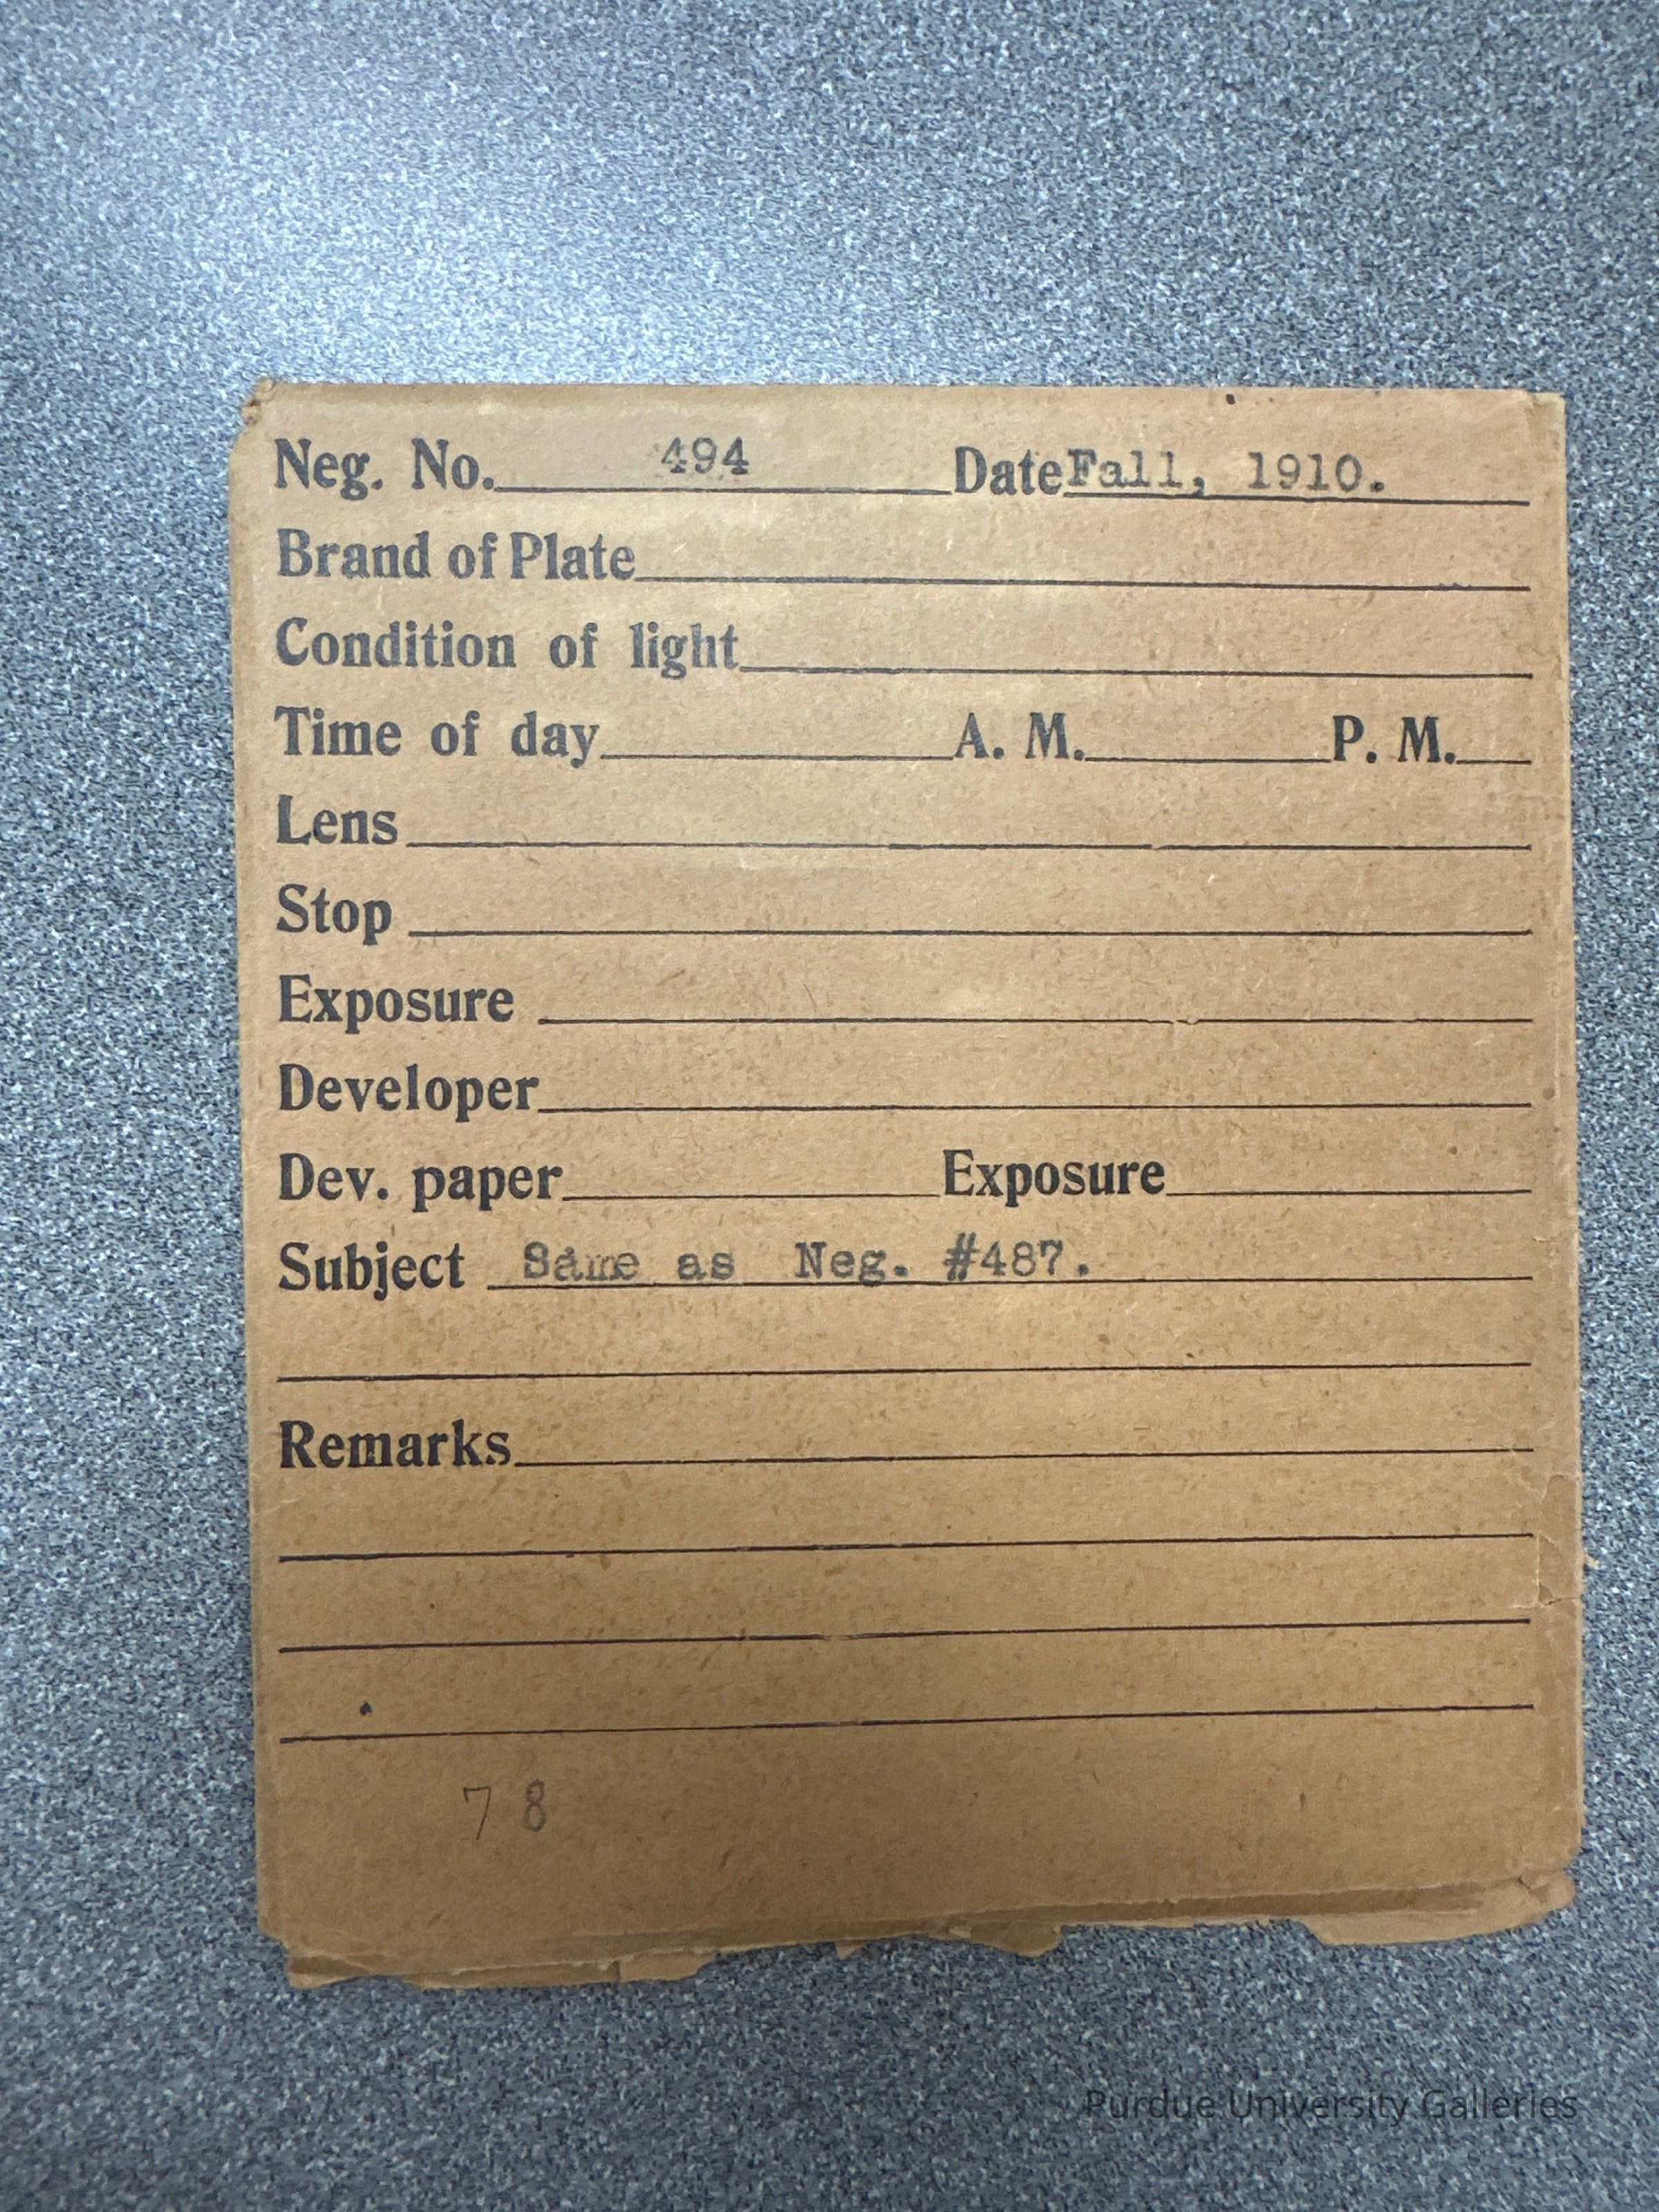 Neg. No. 494 Date Fall, 1910.
Brand of Plate
Condition of light
Time of day A. M. P. M.
Lens
Stop
Exposure
Developer
Dev. paper Exposure
Subject Same as Neg. #487.
Remarks
7 8
Purdue University Galleries